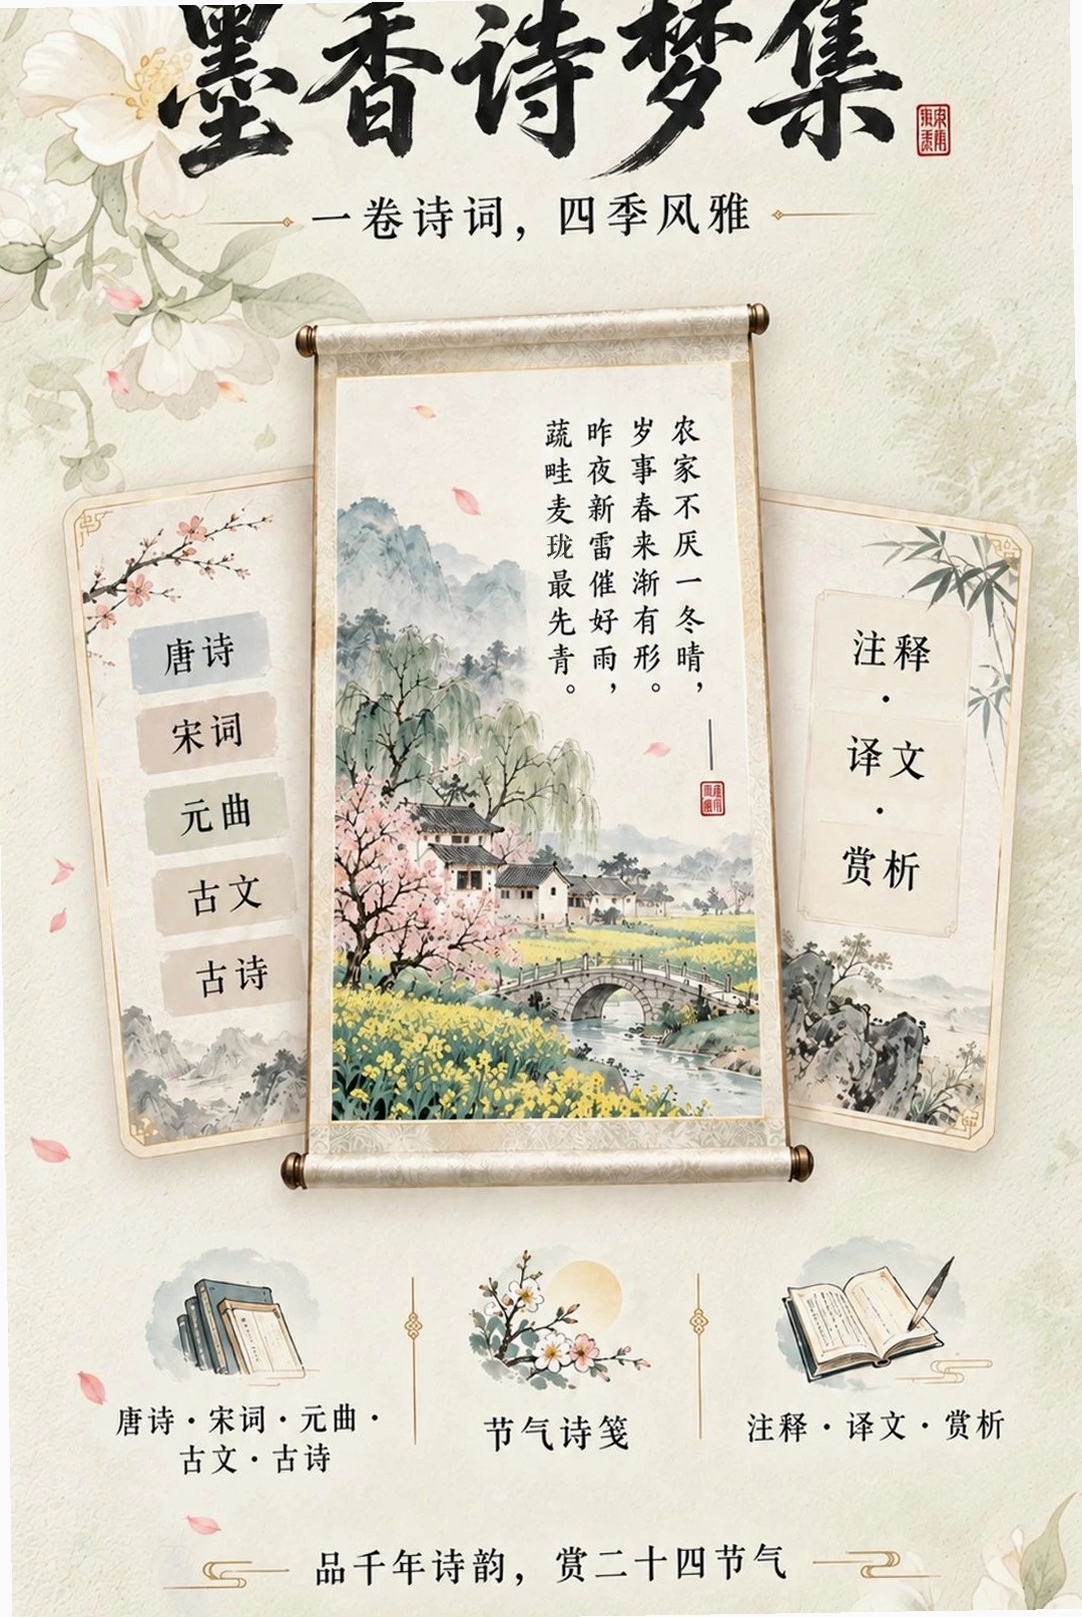 墨香诗梦集
一卷诗词，四季风雅
农家不厌一冬晴，
岁事春来渐有形。
昨夜新雷催好雨，
蔬畦麦珑最先青。
唐诗
宋词
元曲
古文
古诗
注释
·
译文
·
赏析
唐诗·宋词·元曲·
古文·古诗
节气诗笺
注释·译文·赏析
品千年诗韵，赏二十四节气